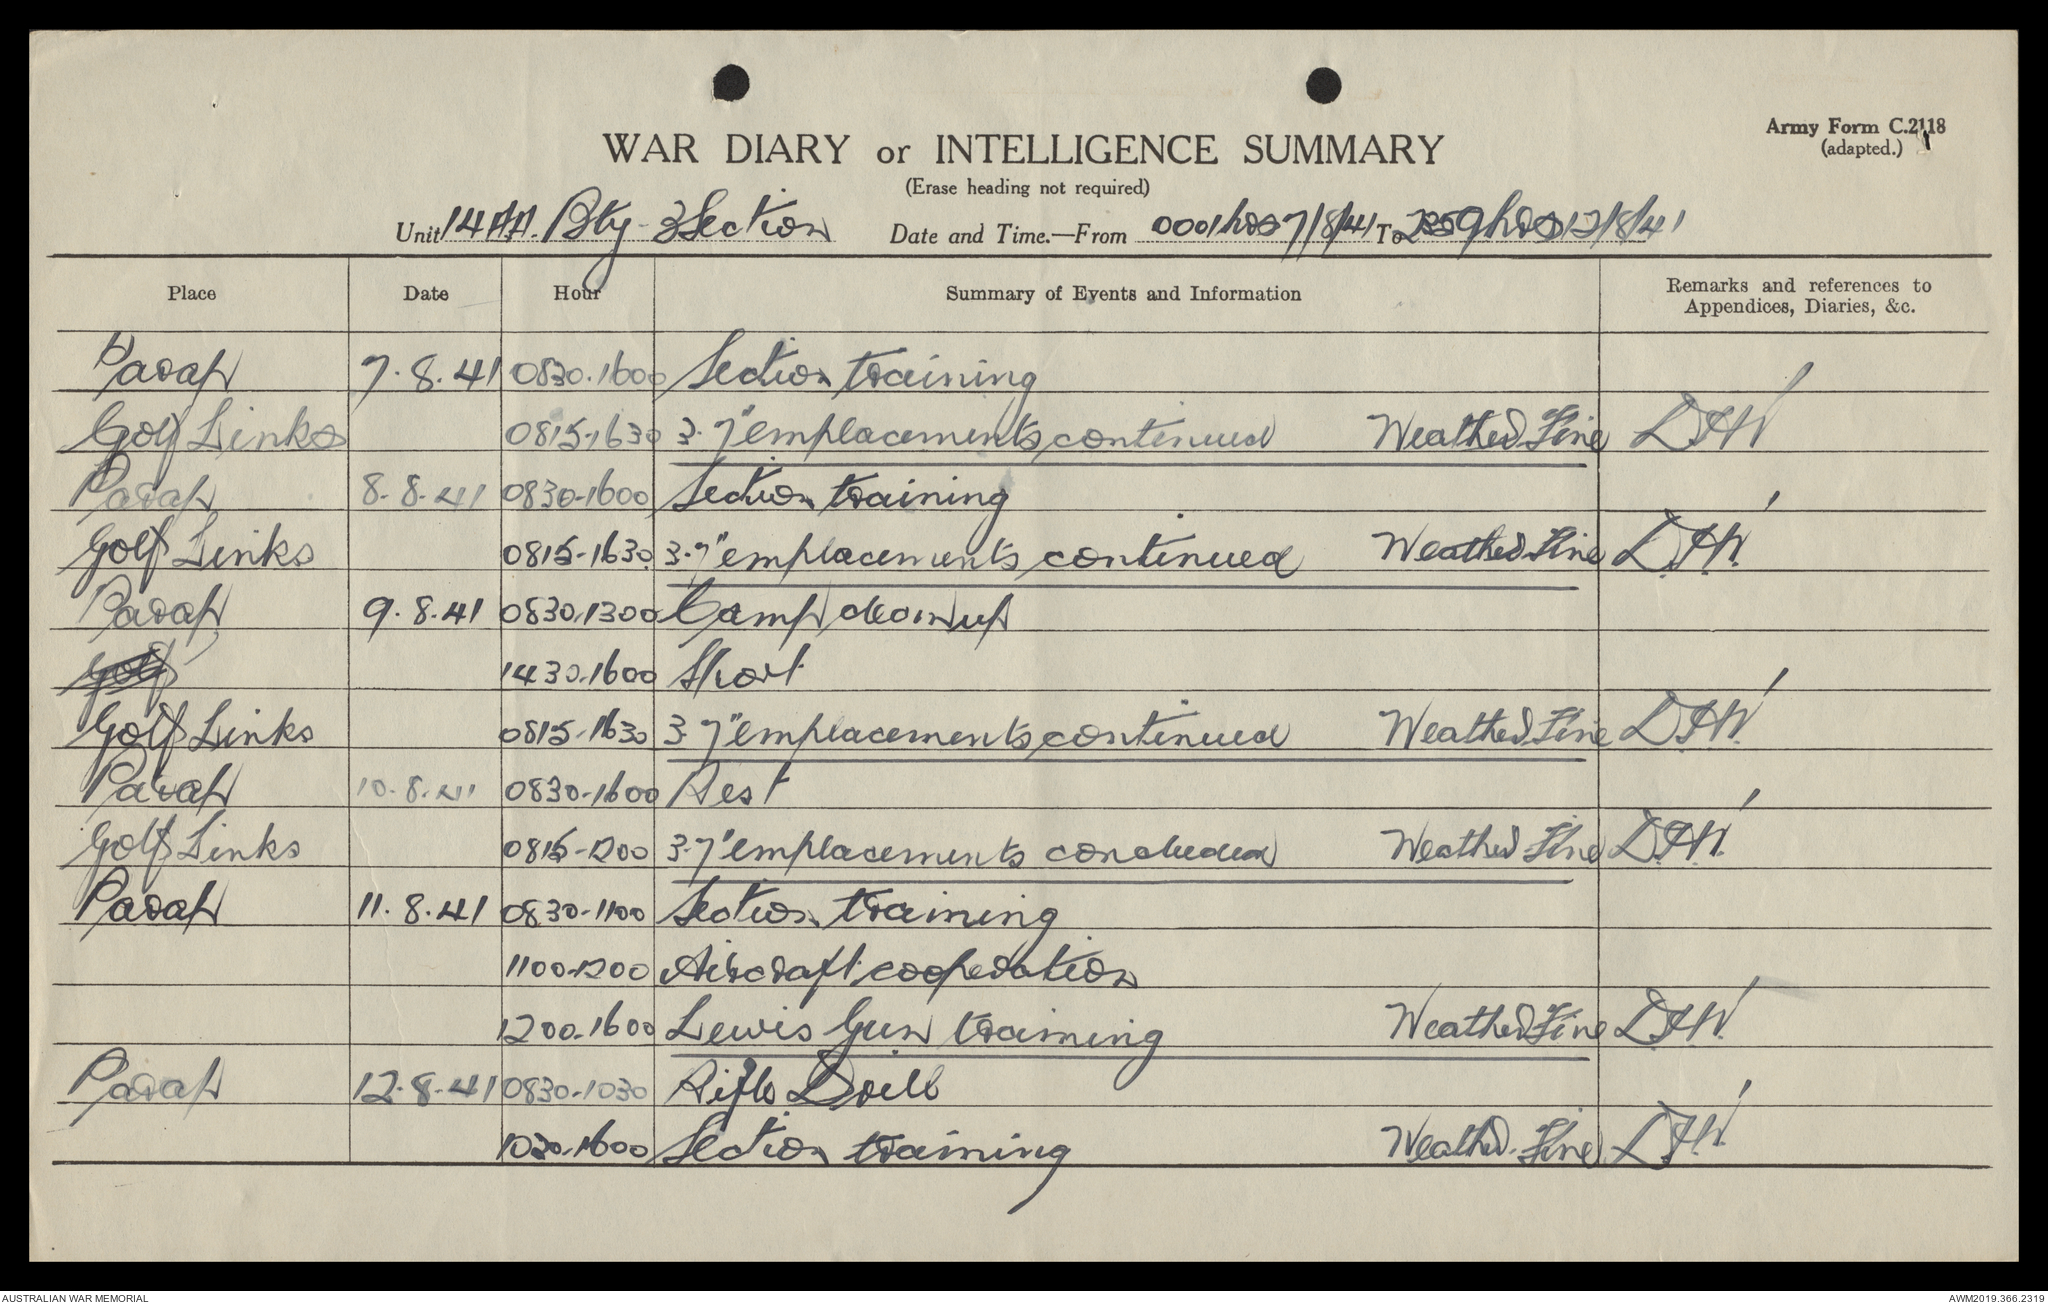 Army Form C.2118
(adapted.)
WAR DIARY or INTELLIGENCE SUMMARY
(Erase heading not required)
Unit 14 AA. Bty - 3 Section Date and Time.—From 0001hrs 7/8/41 To 2359hrs 12/8/41
Place Date Hour Summary of Events and Information Remarks and references to Appendices, Diaries, &c.
Parap 7.8.41 0830.1600 Section training
Golf Links 0815-1630 3.7" emplacements continued Weather Fine DHW
Parap 8.8.41 0830-1600 Section training
Golf Links 0815-1630 3.7" emplacements continued Weather Fine D.H.W.
Parap 9.8.41 0830.1300 Camp clean up
Golf 1430.1600 Sport
Golf Links 0815-1630 3.7" emplacements continued Weather Fine D.H.W.
Parap 10.8.41 0830-1600 Rest
Golf Links 0815-1200 3.7" emplacements concluded Weather Fine D.H.W.
Parap 11.8.41 0830-1100 Section training
1100-1200 Aircraft cooperation
1200-1600 Lewis Gun training Weather Fine D.H.W.
Parap 12.8.41 0830-1030 Rifle Drill
1030-1600 Section training Weather. Fine DHW
AUSTRALIAN WAR MEMORIAL AWM2019.366.2319